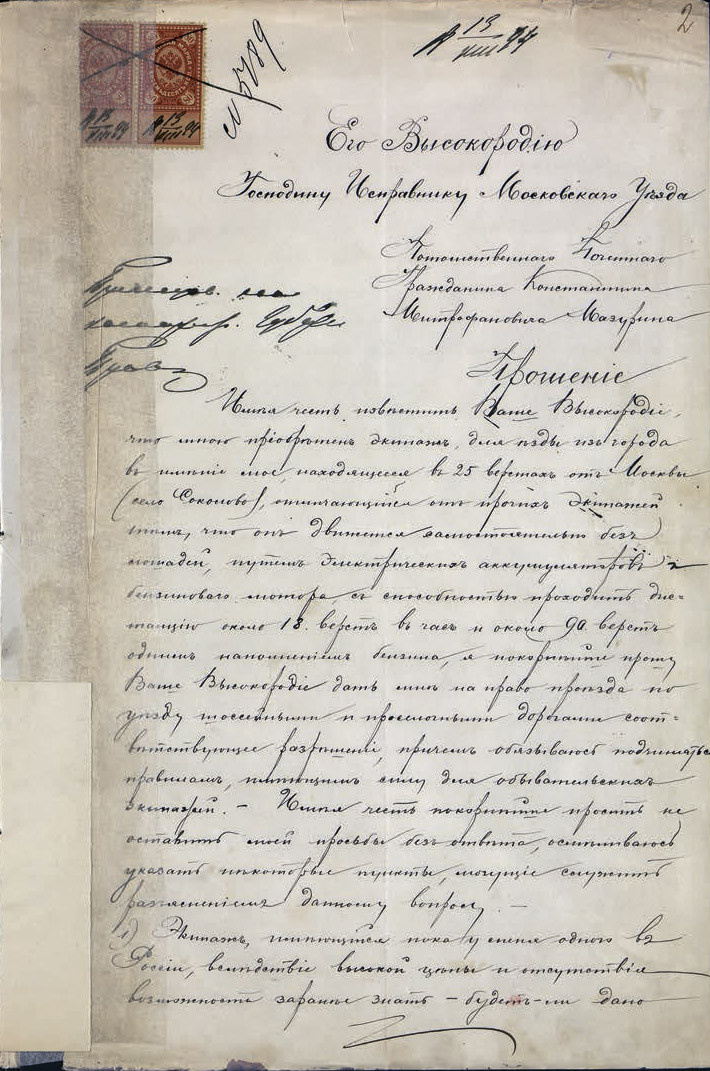 2
13
VIII 94
№ 5789
13
VIII 94
13
VIII 94
Его Высокородію
Господину Исправнику Московскаго Уѣзда
Потомственнаго Почетнаго
Гражданина Константина
Митрофановича Мазурина
Прошеніе
Имѣя честь извѣстить Ваше Высокородіе,
что мною пріобрѣтенъ экипажъ, для ѣзды изъ города
въ имѣніе мое, находящееся въ 25 верстахъ отъ Москвы
(село Соколово), отличающійся отъ прочихъ экипажей
тѣмъ, что онъ движется самостоятельно безъ
лошадей, путемъ электрическихъ аккумуляторовъ и
бензиноваго мотора, съ способностью проходить дис-
танцію около 18. верстъ въ часъ и около 90. верстъ
однимъ наполненіемъ бензина, я покорнѣйше прошу
Ваше Высокородіе дать мнѣ на право проѣзда по
уѣзду шоссейными и проселочными дорогами соот-
вѣтствующее разрѣшеніе, причемъ обязываюсь подчиняться
правиламъ, имѣющимъ силу для обывательскихъ
экипажей. - Имѣя честь покорнѣйше просить не
оставить моей просьбы безъ отвѣта, осмѣливаюсь
указать нѣкоторые пункты, могущіе служить
разъясненіемъ данному вопросу. -
1) Экипажъ, имѣющійся пока у меня одного въ
Россіи, вслѣдствіе высокой цѣны и отсутствія
возможности заранѣе знать - будетъ-ли дано